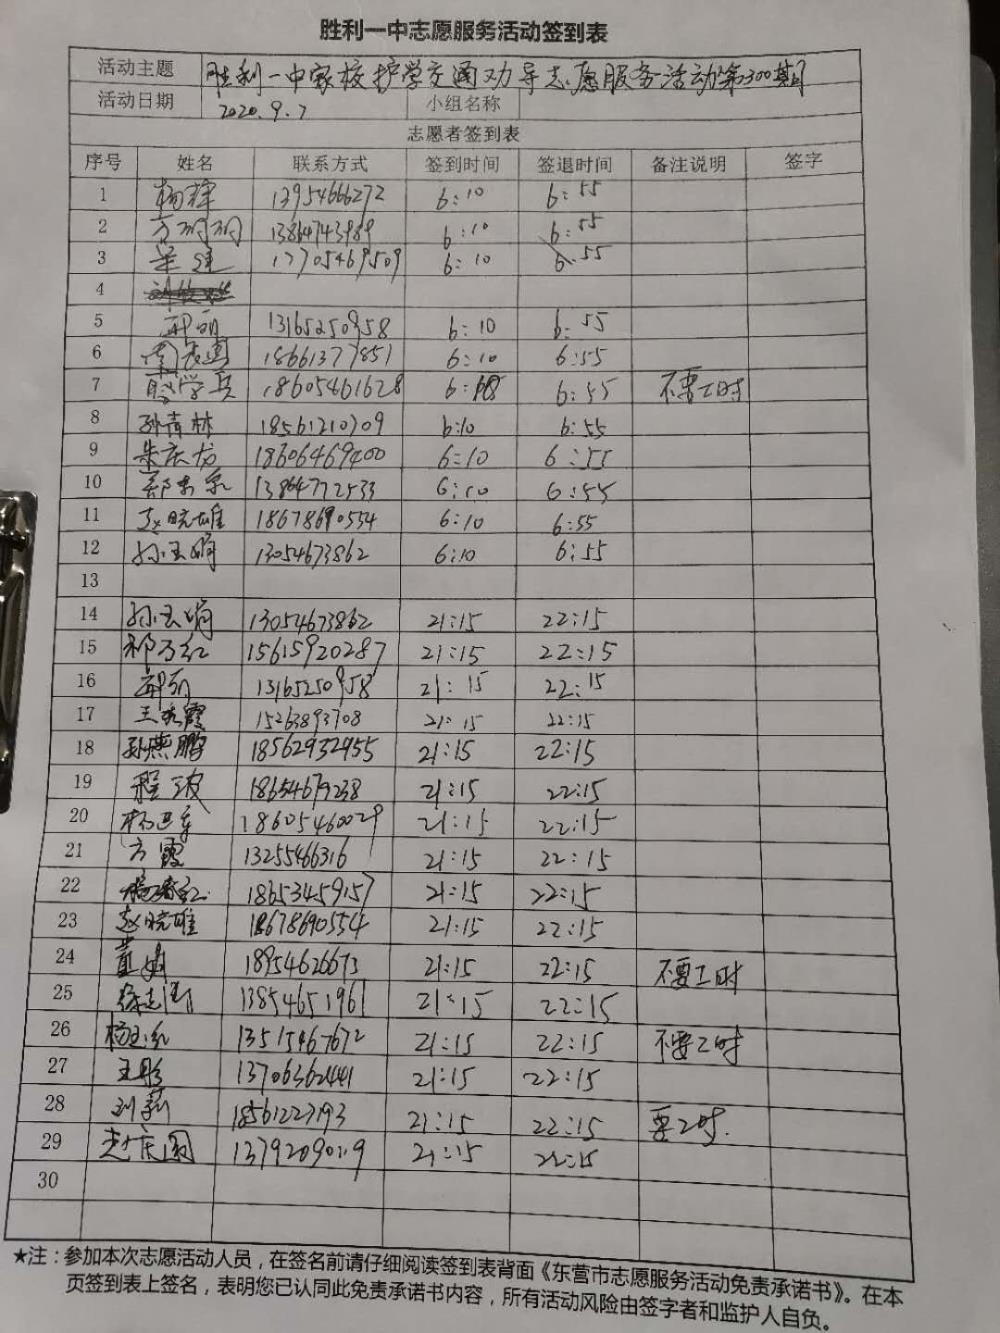 胜利一中志愿服务活动签到表
活动主题 胜利一中家校护学交通劝导志愿服务活动第300期
活动日期 2020.9.7 小组名称
志愿者签到表
序号 姓名 联系方式 签到时间 签退时间 备注说明 签字
1 13954666272 6:10 6:55
2 方珂珂 13864743989 6:10 6:55
3 17705469509 6:10 6:55
4
5 13165250958 6:10 6:55
6 18661377851 6:10 6:55
7 学兵 18605461628 6: 6:55 不要工时
8 孙青林 18561210709 6:10 6:55
9 朱庆龙 18606469400 6:10 6:55
10 13864772533 6:10 6:55
11 赵晓雄 18678690554 6:10 6:55
12 孙玉娟 13054673862 6:10 6:55
13
14 孙玉娟 13054673862 21:15 22:15
15 祁万红 15615920287 21:15 22:15
16 13165250958 21:15 22:15
17 王 霞 15263893708 21:15 22:15
18 孙燕鹏 18562932955 21:15 22:15
19 程波 18654679238 21:15 22:15
20 杨 军 18605460029 21:15 22:15
21 方霞 13255466316 21:15 22:15
22 杨春红 18653459157 21:15 22:15
23 赵晓雄 18678690554 21:15 22:15
24 董娟 18954626673 21:15 22:15 不要工时
25 徐志 13854651961 21:15 22:15
26 杨玉红 13515467672 21:15 22:15 不要工时
27 王彤 13706362441 21:15 22:15
28 刘莉 18561227193 21:15 22:15 要工时.
29 赵庆国 137920901 9 21:15 22:15
30
★注：参加本次志愿活动人员，在签名前请仔细阅读签到表背面《东营市志愿服务活动免责承诺书》。在本
页签到表上签名，表明您已认同此免责承诺书内容，所有活动风险由签字者和监护人自负。